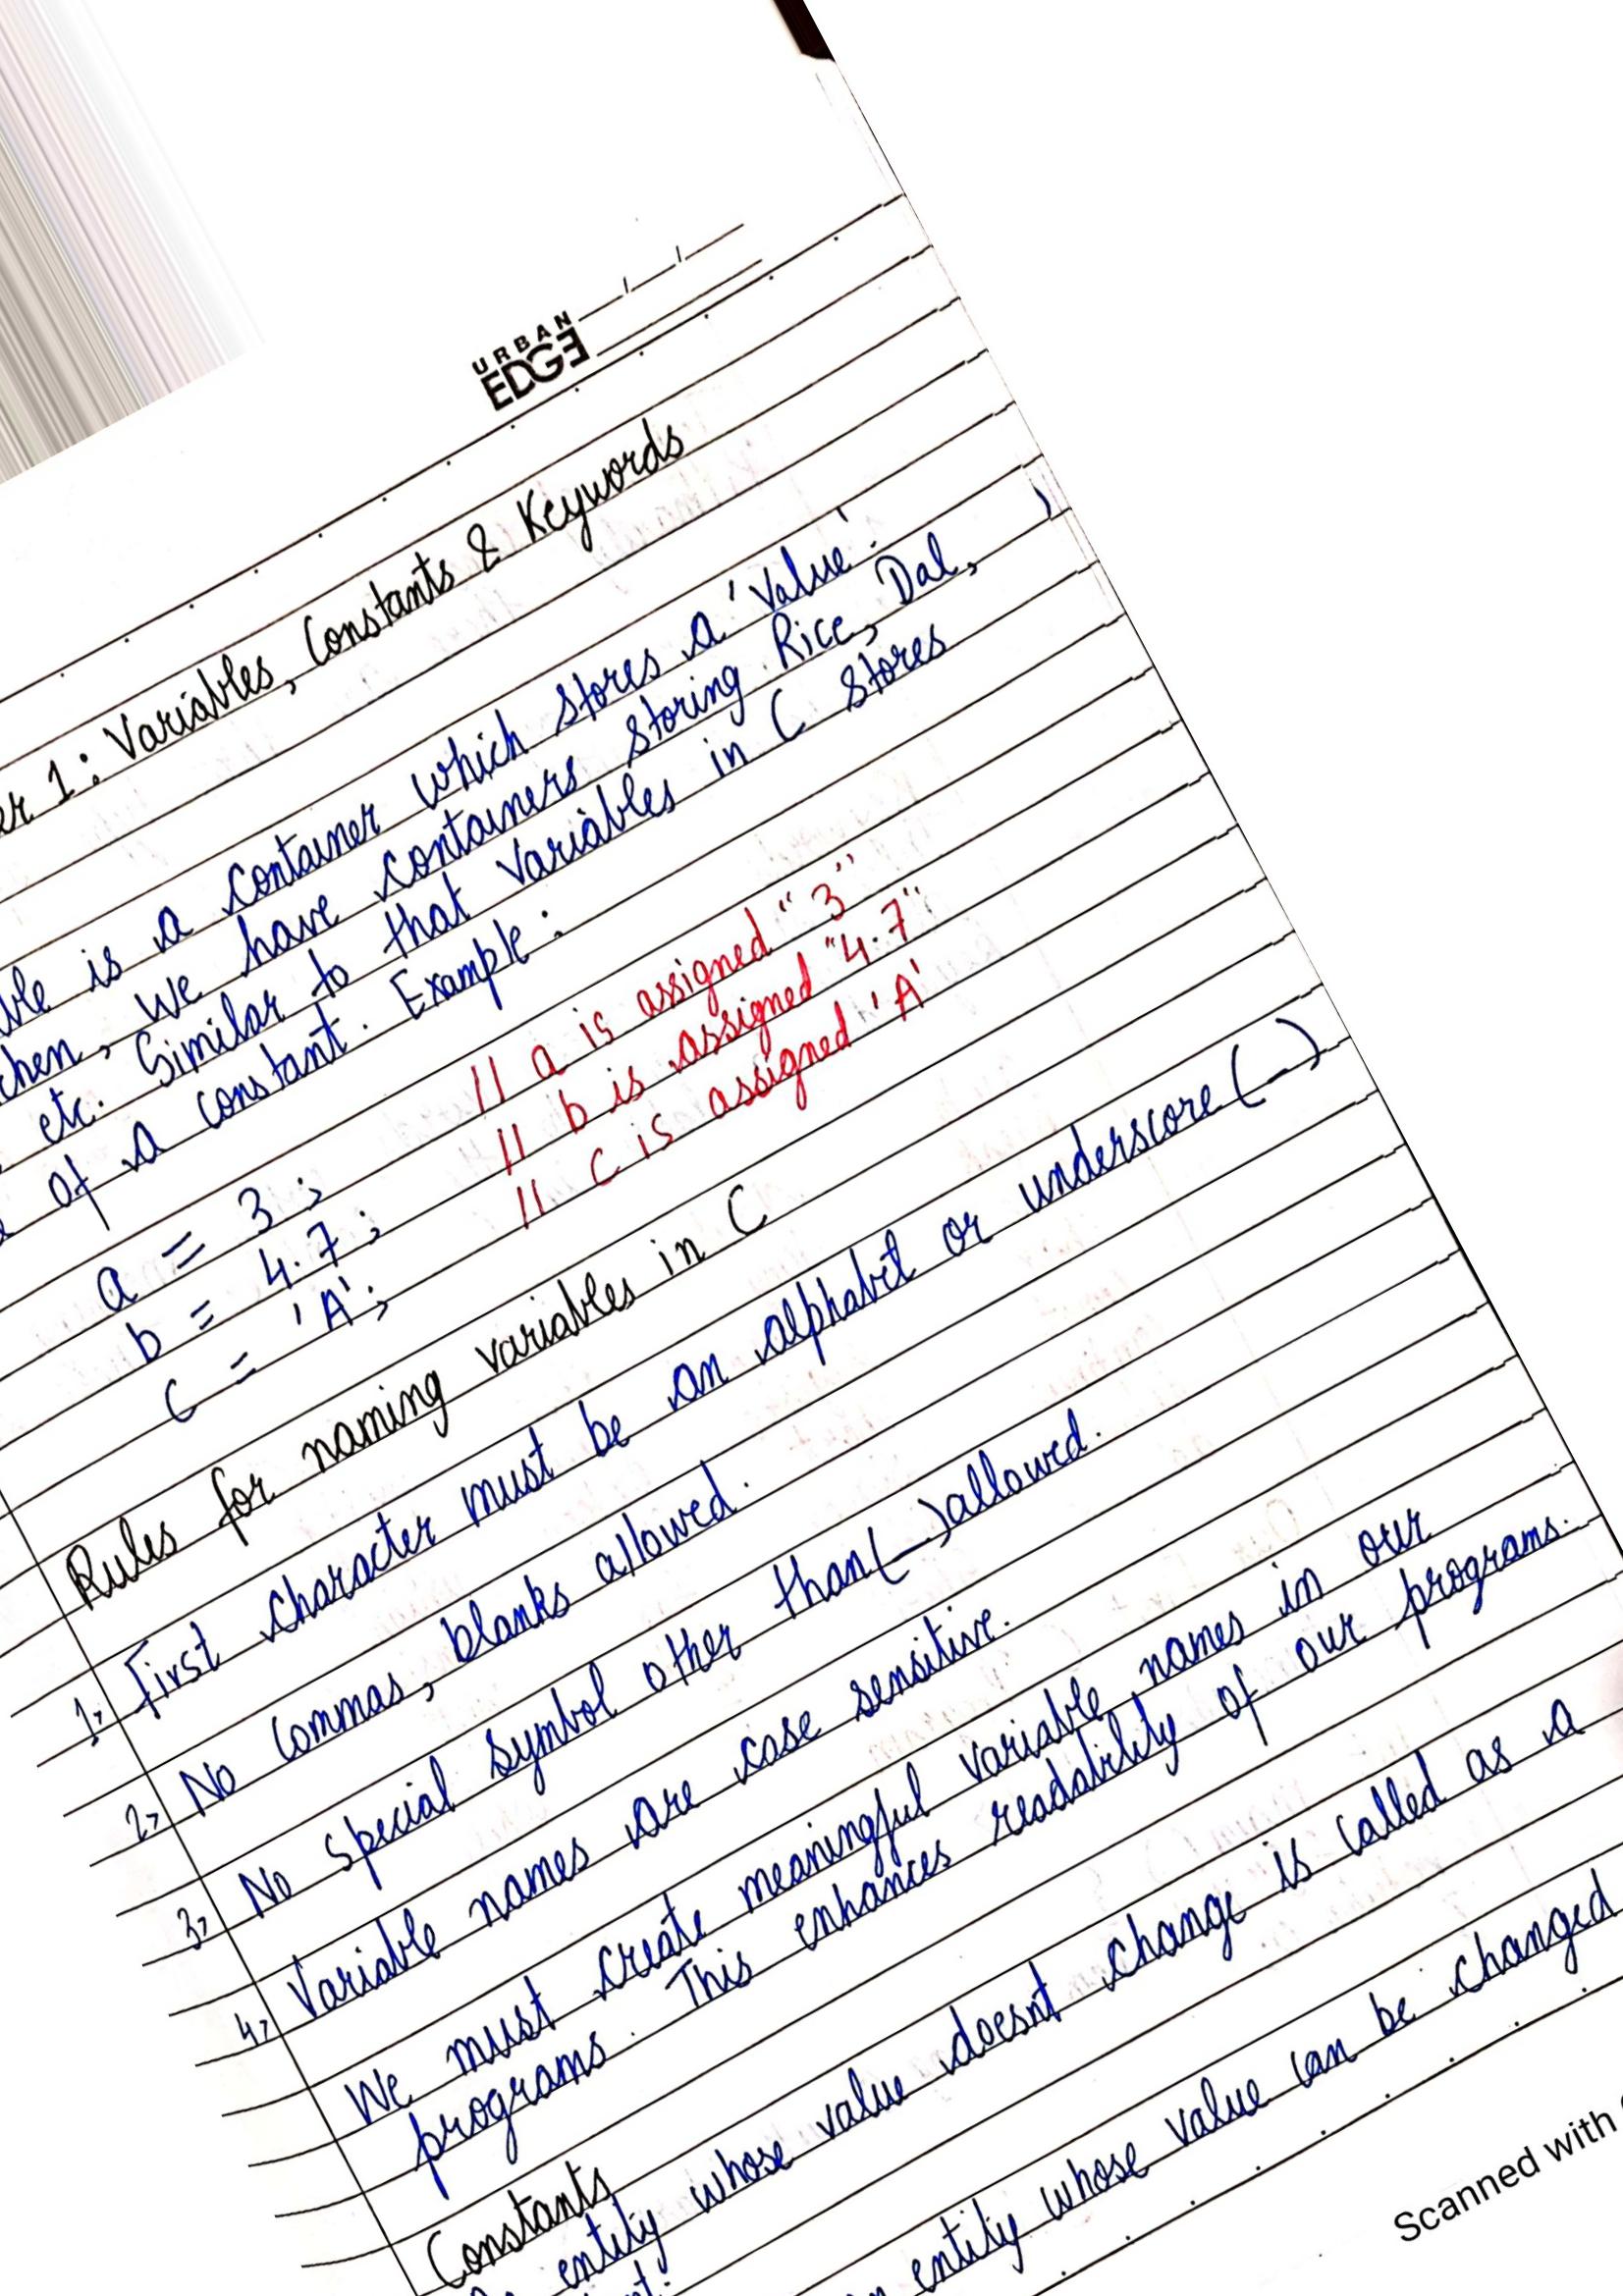 URBAN
EDGE
er 1: Variables, Constants & Keywords
ble is a container which stores a 'Value'.
chen, we have containers storing Rice, Dal,
etc. Similar to that Variables in C stores
of a constant. Example:
a = 3; // a is assigned "3"
b = 4.7; // b is assigned "4.7"
c = 'A'; // c is assigned 'A'
Rules for naming variables in C
1> First character must be an alphabet or underscore (_)
2> No commas, blanks allowed.
3> No special symbol other than (_) allowed.
4> Variable names are case sensitive.
We must create meaningful variable names in our
programs. This enhances readability of our programs.
Constants
entity whose value doesnt change is called as a
nt.
n entity whose value can be changed
Scanned with